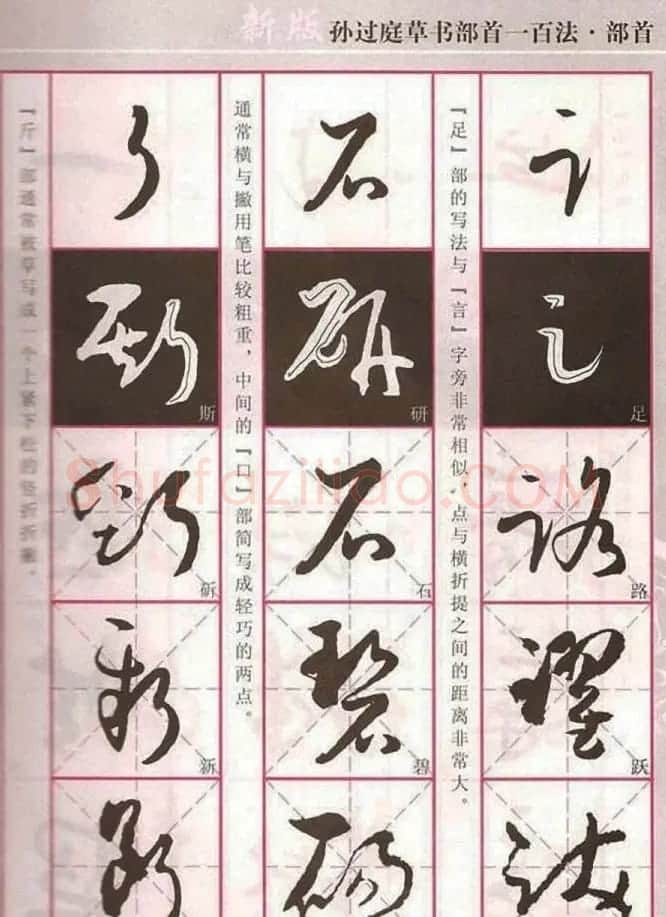 新版 孙过庭草书部首一百法·部首
『足』部的写法与『言』字旁非常相似，点与横折提之间的距离非常大。
足
路
跃
通常横与撇用笔比较粗重，中间的『口』部简写成轻巧的两点。
研
石
碧
『斤』部通常被草写成一个上紧下松的竖折折撇。
斯
斫
新
shufaziliao.COM